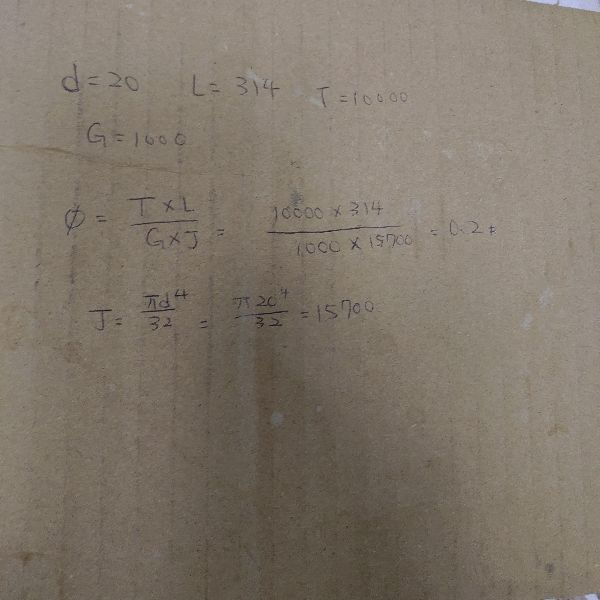 d=20 L=314 T=10000
G=1000
Ø = T×L / G×J = 10000×314 / 1000×15700 = 0.2 #
J = πd⁴ / 32 = π20⁴ / 32 = 15700